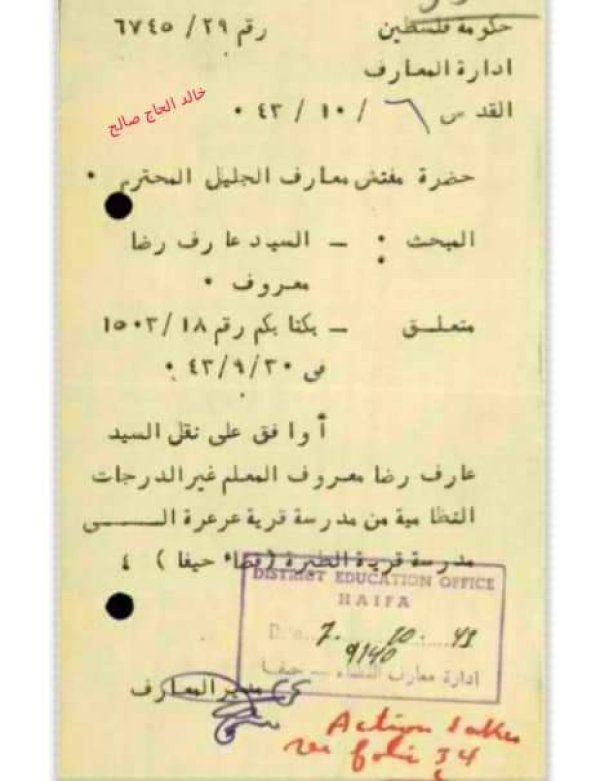 حكومة فلسطين رقم ٢٩/ ٦٧٤٥
ادارة المعارف
القدس ٦ / ١٠ / ٤٣ ٠
خالد الحاج صالح
حضرة مفتش معارف الجليل المحترم ٠
المبحث : – السيد عارف رضا
معروف ٠
متعلق – بكتابكم رقم ١٨/ ١٥٠٣
فى ٣٠/٩/٤٣ ٠
أوافق على نقل السيد
عارف رضا معروف المعلم غير الدرجات
النظامية من مدرسة قرية عرعرة الــــى
مدرسة قرية الطيرة (قضاء حيفا ) ٤
DISTRICT EDUCATION OFFICE
HAIFA
7. 10. 43
9140
ادارة معارف اللواء – حيفا
مدير المعارف
Action taken
see folio 34